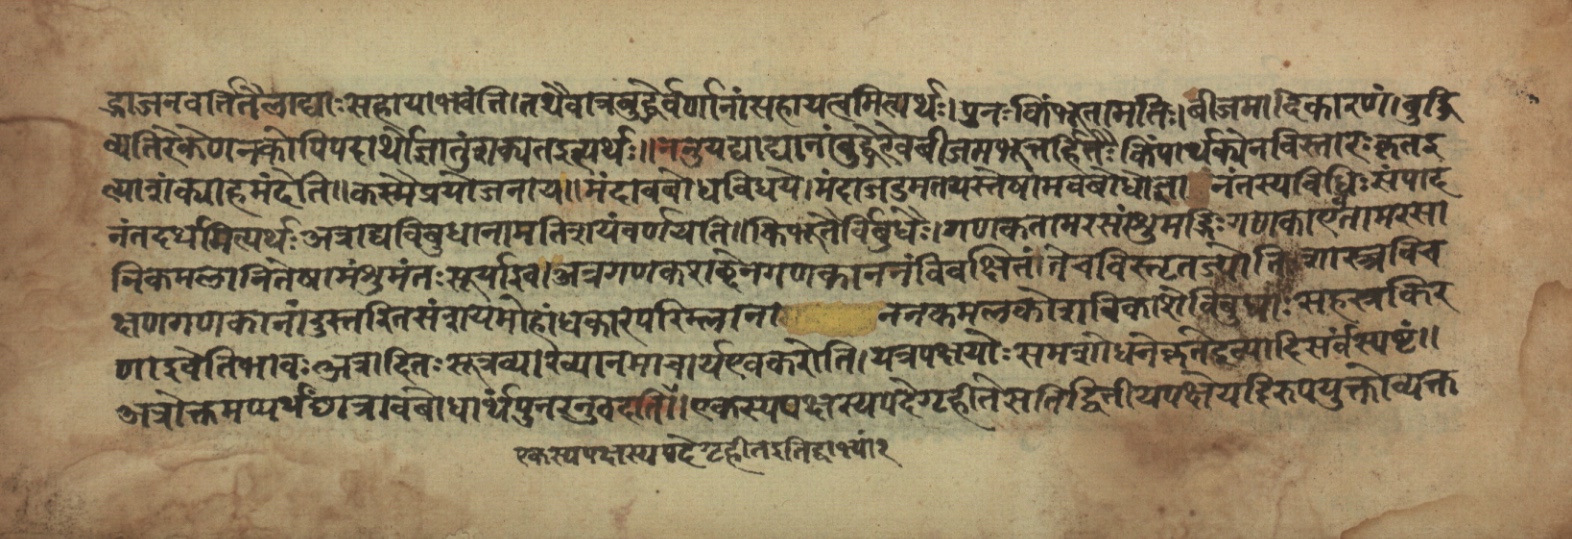 द्भाजनवर्तितैलाद्याः सहाया भवंति। तथैवात्र बुद्धेर्वर्णानां सहायत्वमित्यर्थः। पुनः किंभूता मतिः। बीजमादिकारणं। बुद्धि
व्यतिरेकेण न कोपि पदार्थो ज्ञातुं शक्यत इत्यर्थः॥ ननु यद्याद्यानां बुद्धिरेव बीजमभूत्तर्हि तैः किं पार्थक्येन विस्तारः कृत इ
त्याशंक्याह मंदेति॥ कस्मै प्रयोजनाय॥ मंदावबोधविधये। मंदा जडमतयस्तेषामवबोधो ज्ञानं तस्य विधिः संपाद
नं तदर्थमित्यर्थः अत्राद्यविबुधानामतिशयं वर्णयति॥ किंभूतैर्विबुधैः। गणकतामरसांशुमद्भिः गणका एव तामरसा
नि कमलानि तेषामंशुमंतः सूर्या इव। अत्र गणकशब्देन गणकाननं विवक्षितं। ते च विस्तृतज्योतिःशास्त्रविच
क्षणगणकानां दुस्तरितसंशयमोहांधकारपरिम्लाना ननकमलकोशविकाशे विबुधाः सहस्रकिर
णा इवेति भावः अत्रादितः सूत्रव्याख्यानमाचार्य एव करोति। यत्र पक्षयोः समशोधने कृते इत्यादि सर्वं स्पष्टं॥
अत्रोक्तमप्यर्थं छात्रावबोधार्थं पुनरनुवदति॥ एकस्य पक्षस्य पदे गृहीते सति द्वितीयपक्षे यदि रूपयुक्तोव्यक्त
एकस्य पक्षस्य पदे गृहीत इति द्वाभ्यां २